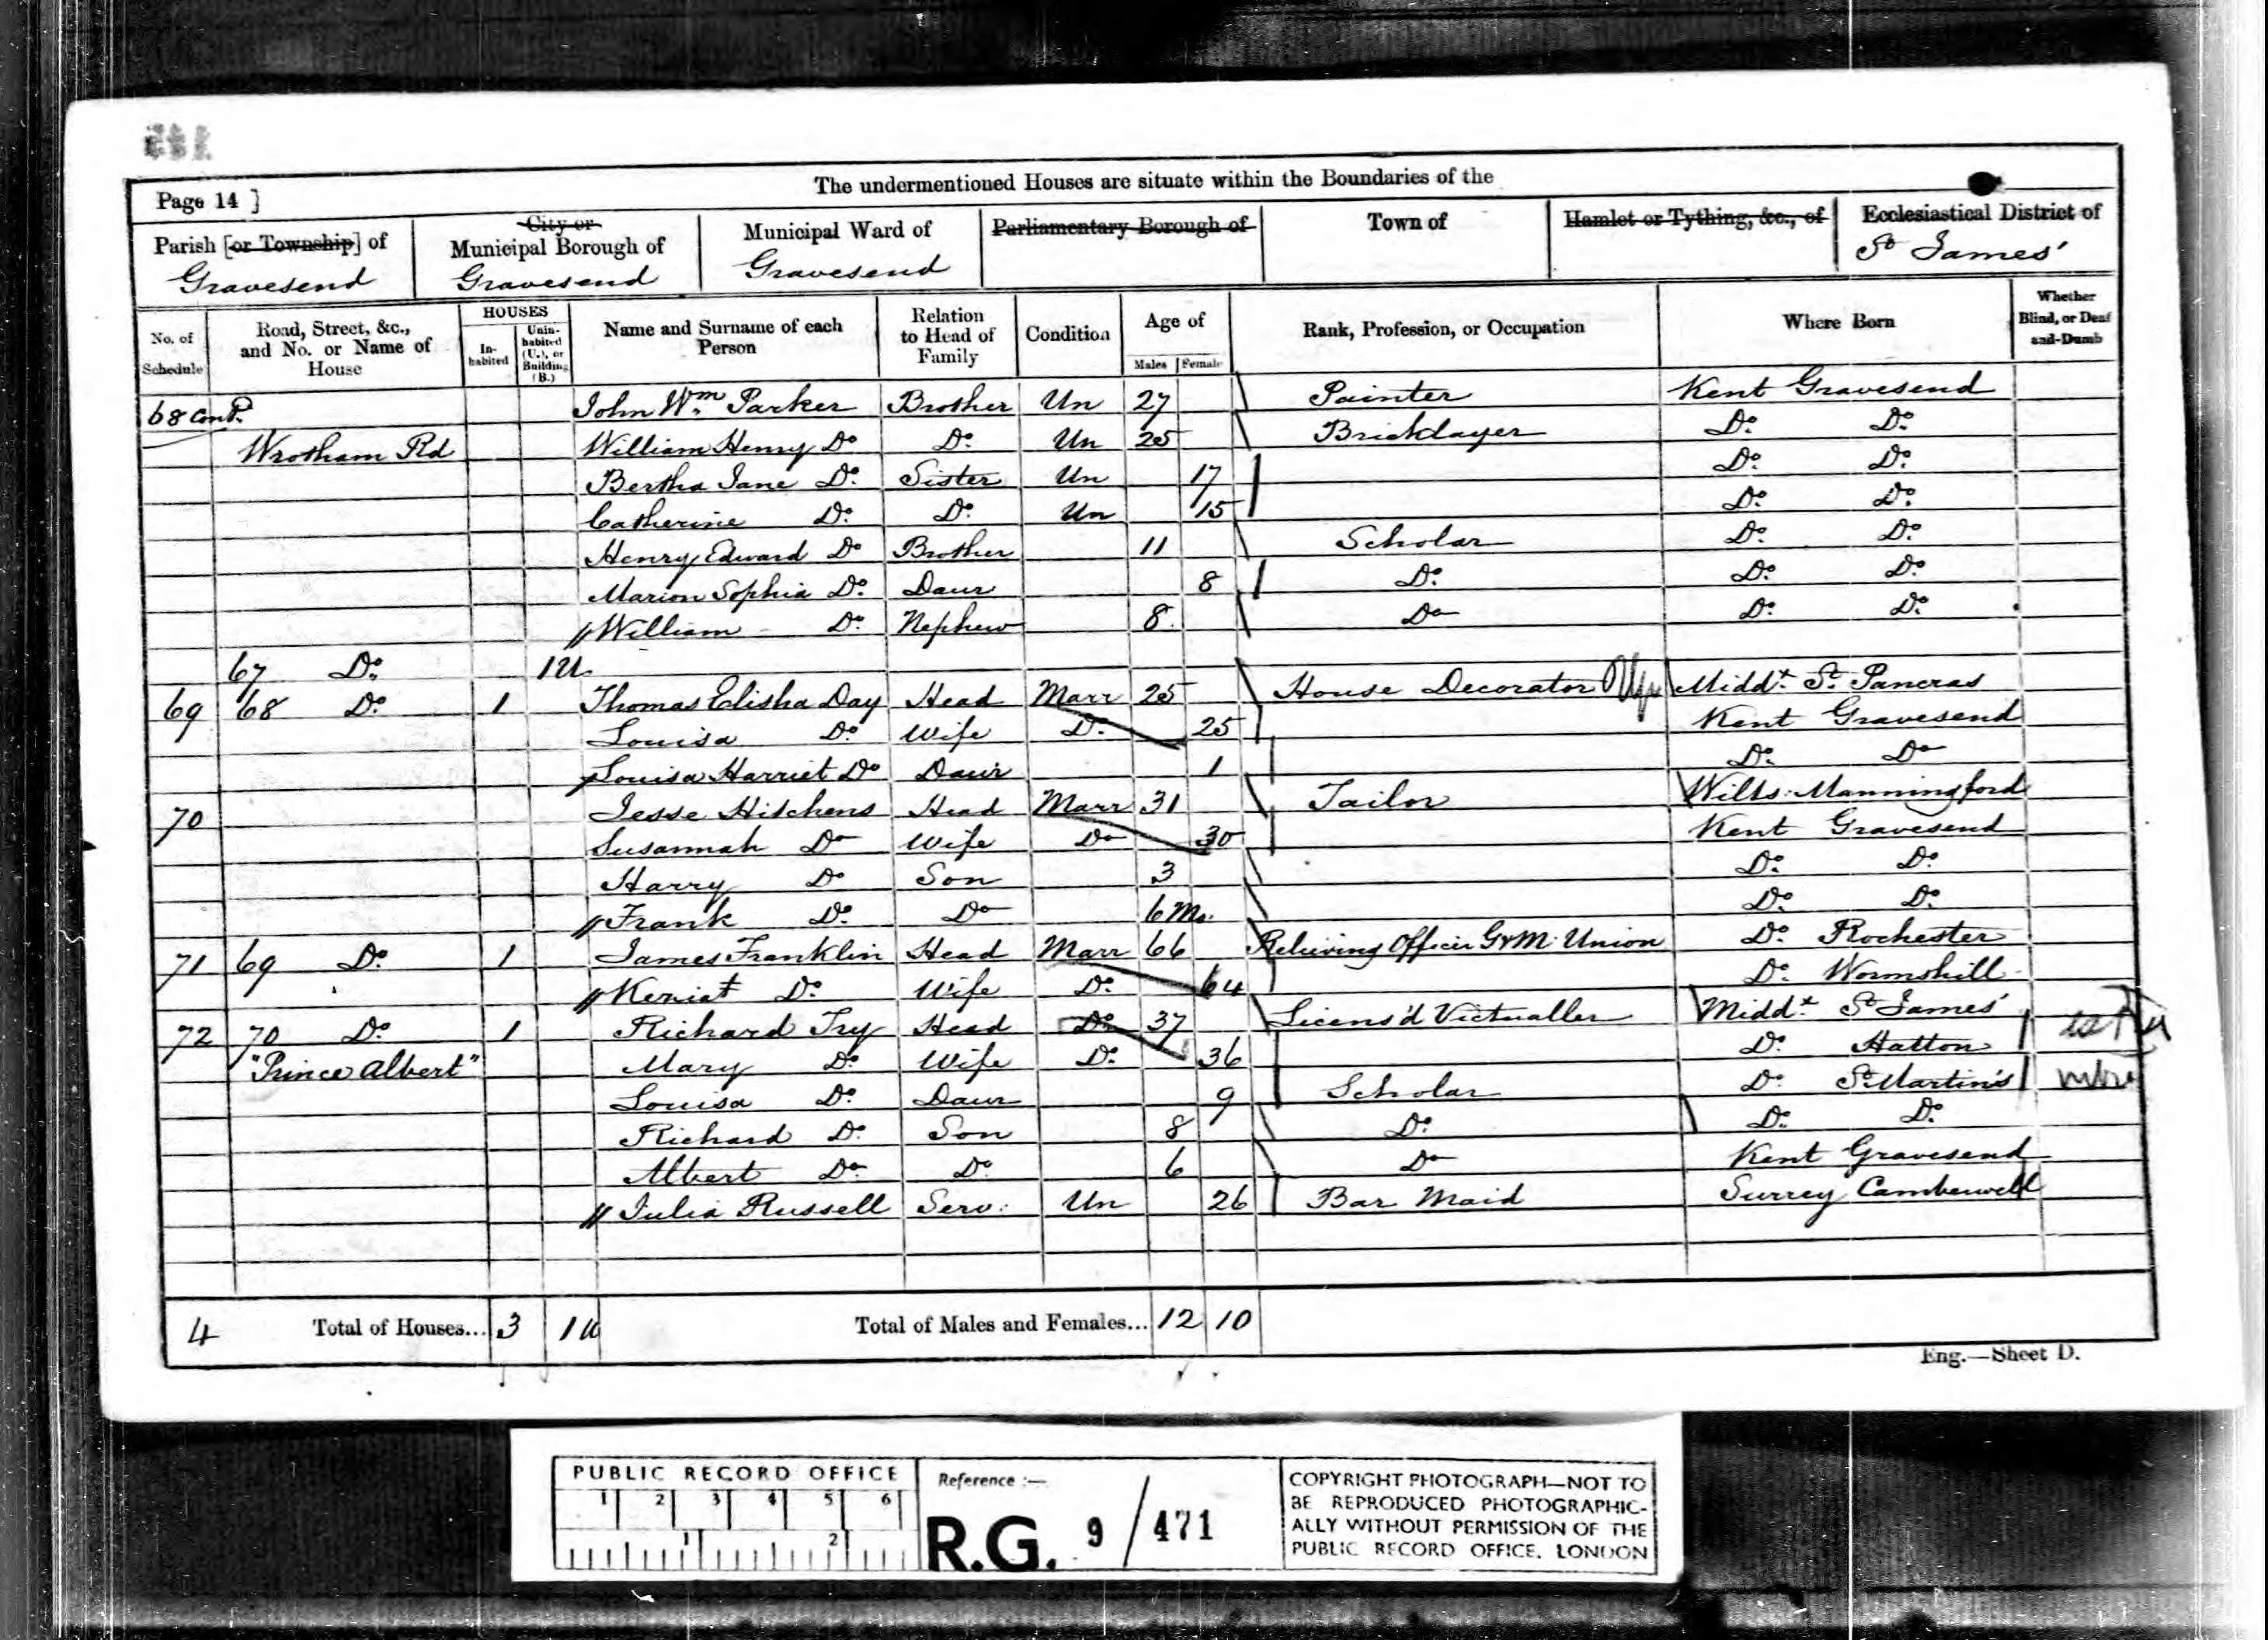 The undermentioned Houses are situate within the Boundaries of the
Page 14 ]
Parish [or Township] of Gravesend
City or Municipal Borough of Gravesend
Municipal Ward of Gravesend
Parliamentary Borough of
Town of
Hamlet or Tything, &c., of
Ecclesiastical District of St James'
No. of Schedule
Road, Street, &c., and No. or Name of House
HOUSES
Inhabited
Uninhabited (U.), or Building (B.)
Name and Surname of each Person
Relation to Head of Family
Condition
Age of
Males Females
Rank, Profession, or Occupation
Where Born
Whether Blind, or Deaf and-Dumb
68 contd. John Wm. Parker Brother Un 27 Painter Kent Gravesend
Wrotham Rd William Henry Do Do. Un 25 Bricklayer Do. Do.
Bertha Jane Do. Sister Un 17 Do. Do.
Catherine Do. Do. Un 15 Do. Do.
Henry Edward Do Brother 11 Scholar Do. Do.
Marion Sophia Do. Daur 8 Do. Do. Do.
William Do. Nephew 8 Do Do. Do.
67 Do. 1U
69 68 Do. 1 Thomas Elisha Day Head Marr 25 House Decorator Middx. St. Pancras
Louisa Do Wife Do. 25 Kent Gravesend
Louisa Harriet Do Daur 1 Do. Do
70 Jesse Hitchens Head Marr 31 Tailor Wilts. Manningford
Susannah Do Wife Do 30 Kent Gravesend
Harry Do Son 3 Do. Do.
Frank Do. Do 6 Mo. Do. Do.
71 69 Do. 1 James Franklin Head Marr 66 Relieving Officer G&M. Union Do. Rochester
Do. Wife Do. 64 Do. Wormshill
72 70 Do. 1 Richard Try Head Do. 37 Licens'd Victualler Middx. St James'
"Prince Albert" Mary Do. Wife Do. 36 Do. Hatton
Louisa Do. Daur 9 Scholar Do. St Martin's
Richard Do. Son 8 Do. Do. Do.
Albert Do. Do. 6 Do Kent Gravesend
Julia Russell Serv. Un 26 Bar Maid Surrey Camberwell
4 Total of Houses... 3 1U Total of Males and Females... 12 10
Eng.—Sheet D.
PUBLIC RECORD OFFICE
1 2 3 4 5 6
1 2
Reference :—
R.G. 9 / 471
COPYRIGHT PHOTOGRAPH—NOT TO
BE REPRODUCED PHOTOGRAPHIC-
ALLY WITHOUT PERMISSION OF THE
PUBLIC RECORD OFFICE. LONDON